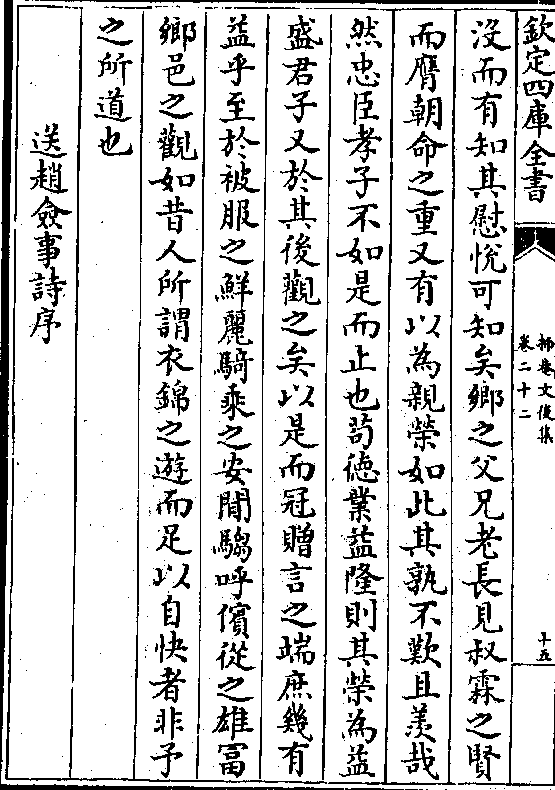 欽定四庫全書
抑菴文後集
卷二十二
十五
没而有知其慰悦可知矣鄉之父兄老長見叔霖之賢
而膺朝命之重又有以為親榮如此其孰不歎且羡哉
然忠臣孝子不如是而止也茍徳業益隆則其榮為益
盛君子又於其後觀之矣以是而冠贈言之端庶幾有
益乎至於被服之鮮麗騎乘之安閒騶呼儐從之雄富
鄉邑之觀如昔人所謂衣錦之遊而足以自快者非予
之所道也
送趙僉事詩序